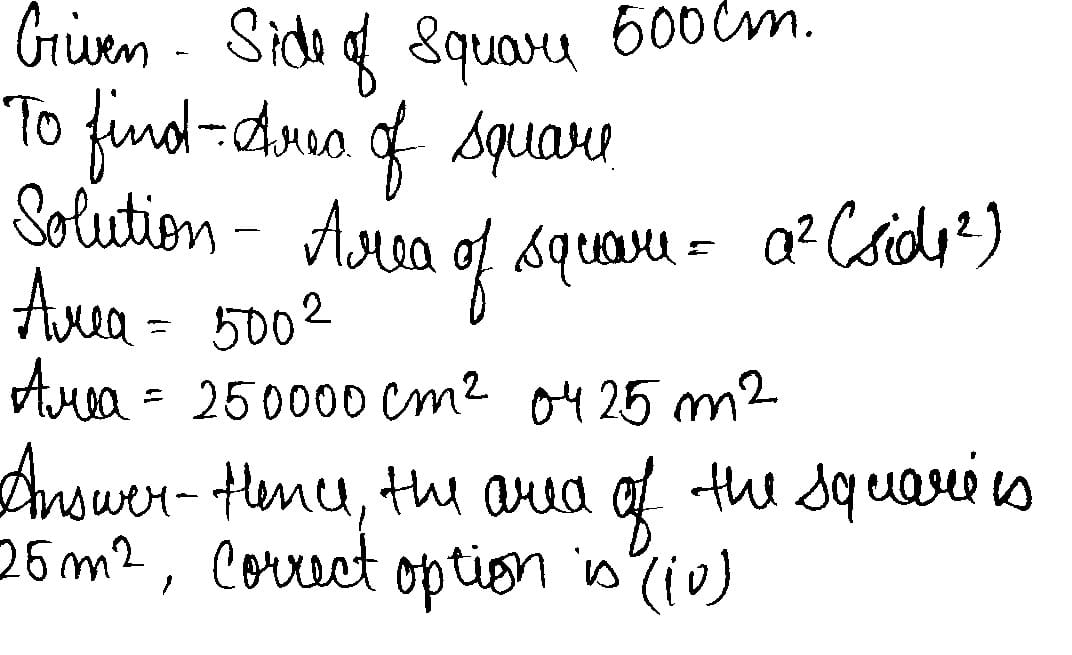 Given - Side of square 500cm.
To find - Area of square
Solution - Area of square = a² (side²)
Area = 500²
Area = 250000 cm² or 25 m²
Answer - Hence, the area of the square is
25 m², Correct option is (iv)